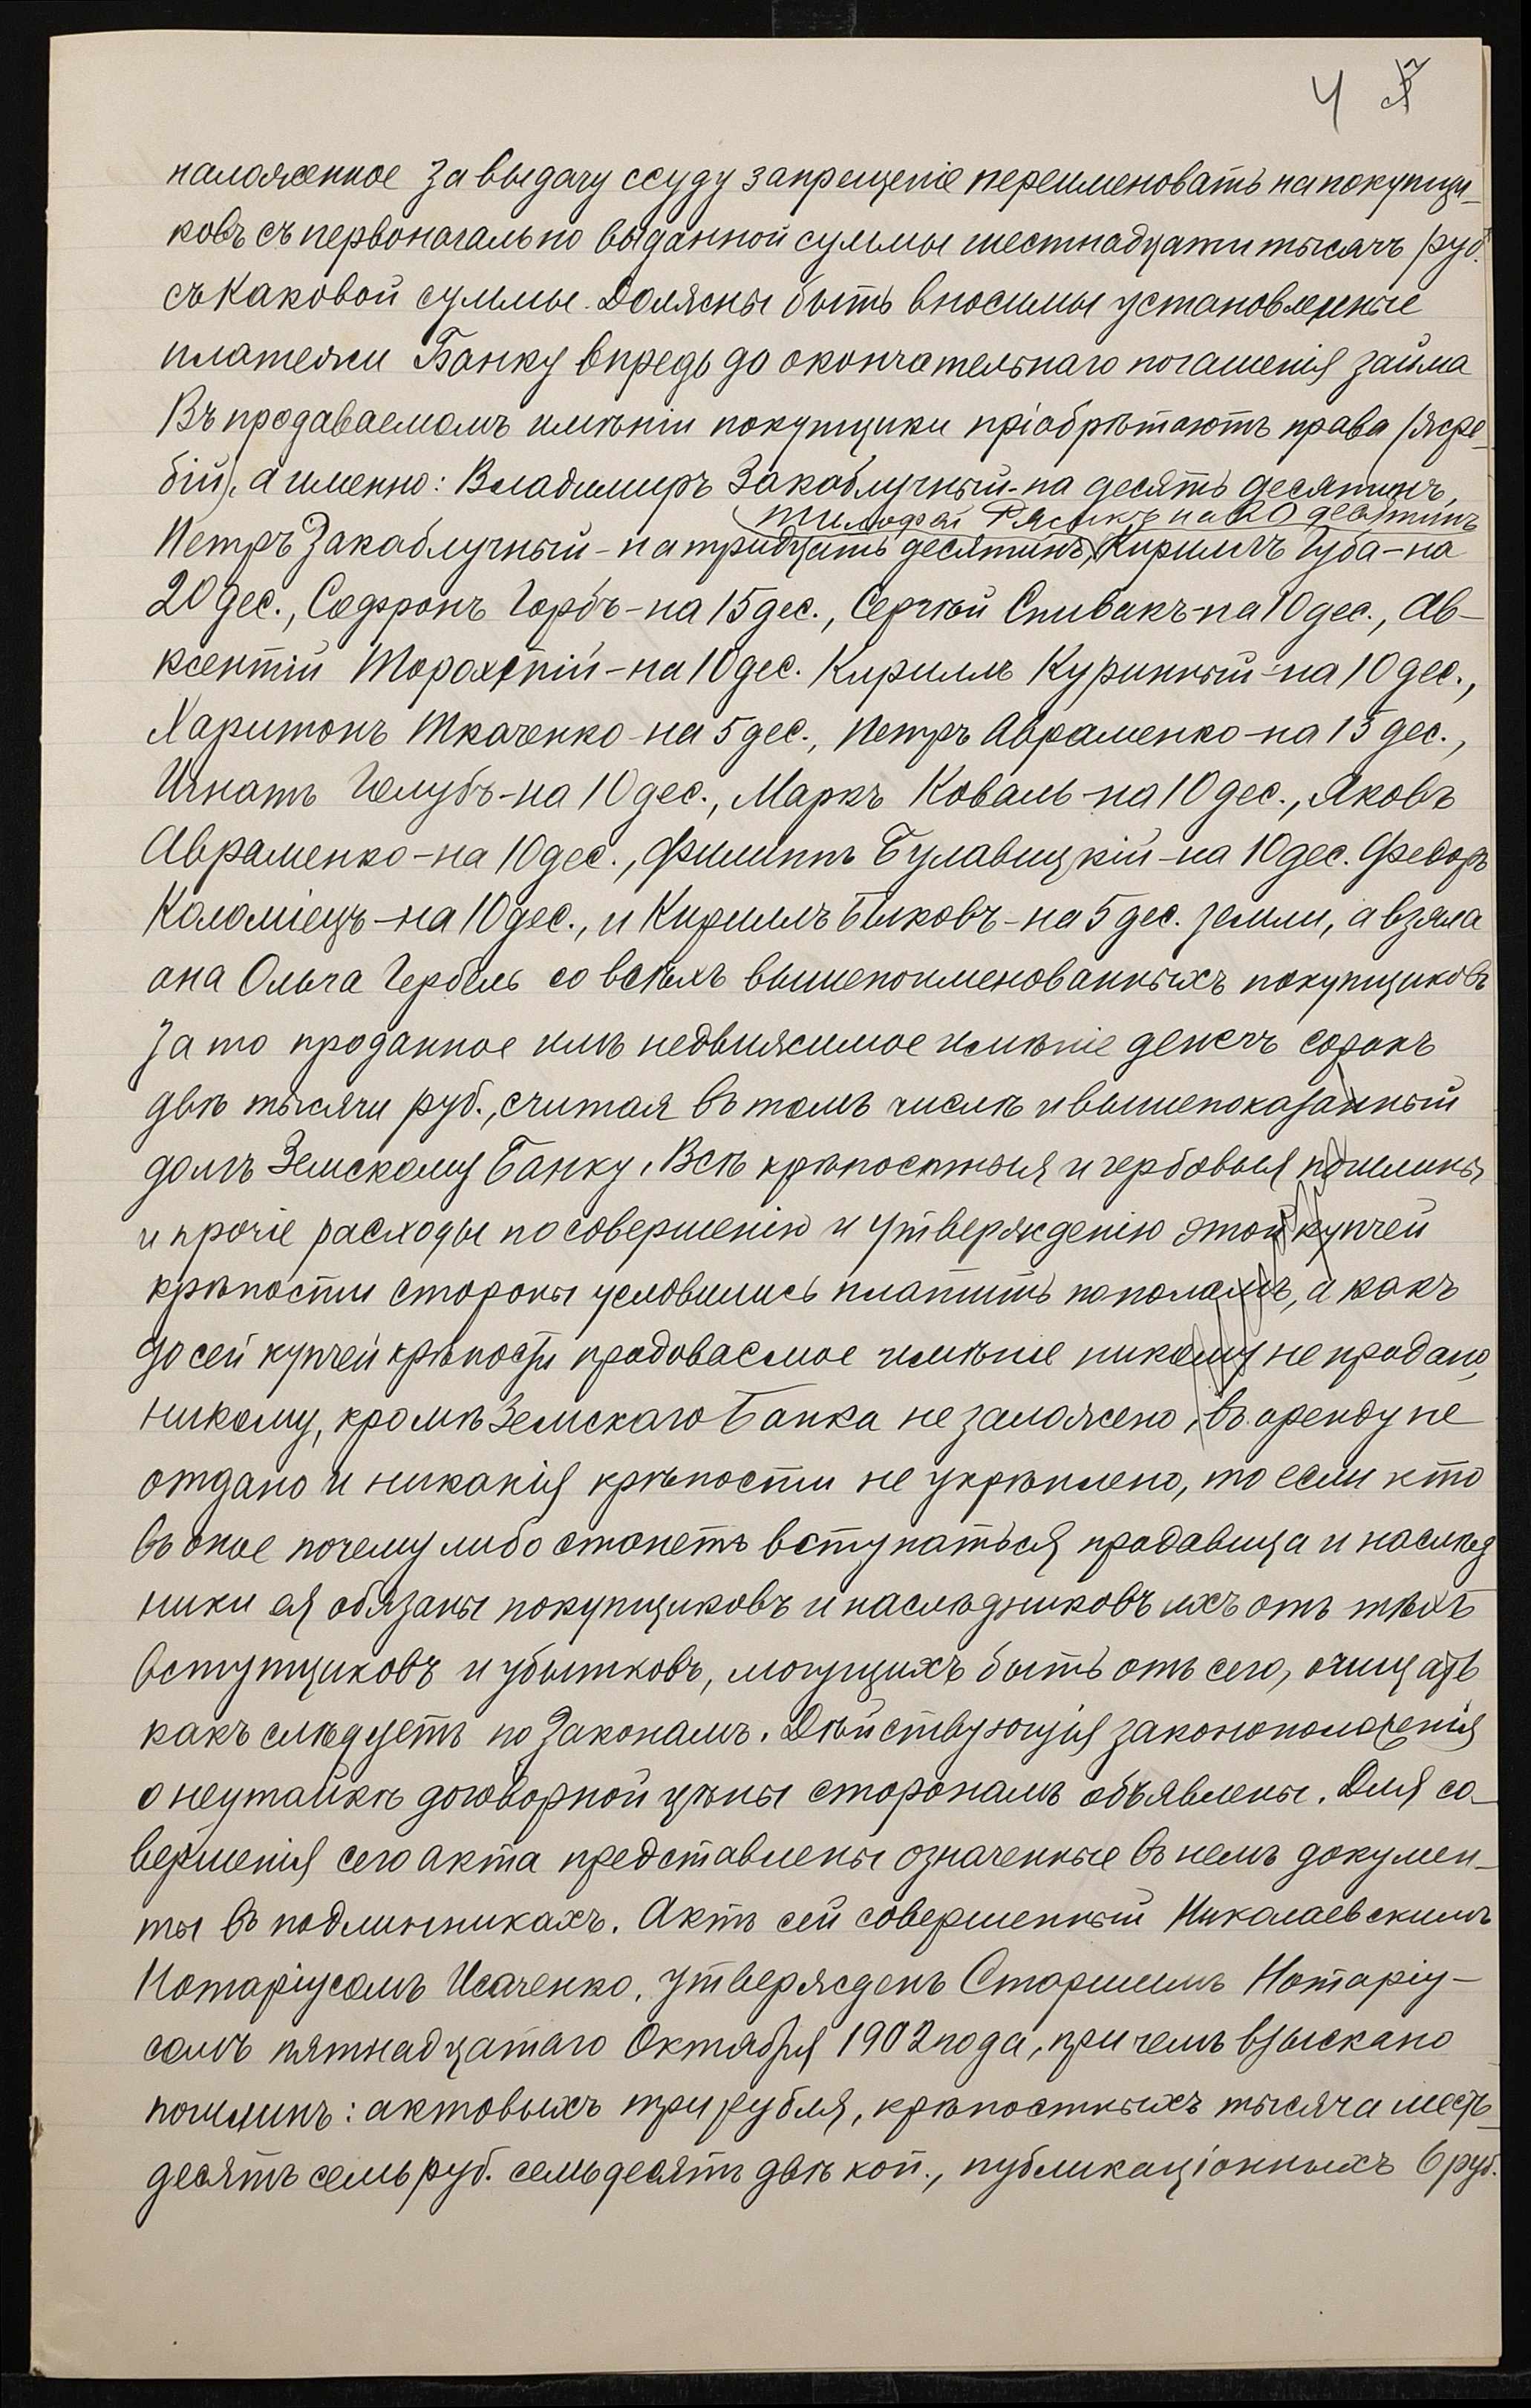 4
наложенное за выдачу ссуду запрещеніе переименовать на покупщи-
ковъ съ первоначально выданной суммы шестнадцати тысячъ руб.
съ каковой суммы должны быть вносимы установленные
платежи Банку впредь до окончательнаго погашенія займа
Въ продаваемомъ имѣніи покупщики пріобрѣтаютъ права (жре-
бій), а именно: Владимиръ Закаблучный - на десять десятинъ,
Тимофей на 20 десятинъ
Петръ Закаблучный - на тридцать десятинъ, Кириллъ Губа - на
20 дес., Софронъ Горбъ - на 15 дес., Сергѣй Спивакъ - на 10 дес., Ав-
ксентій - на 10 дес. Кириллъ Куринный - на 10 дес.,
Харитонъ Ткаченко - на 5 дес., Петръ Авраменко - на 15 дес.,
Игнатъ Голубъ - на 10 дес., Маркъ Коваль - на 10 дес., Яковъ
Авраменко - на 10 дес., Филиппъ Булавицкій - на 10 дес. Федоръ
Коломіецъ - на 10 дес., и Кириллъ Быковъ - на 5 дес. земли, а взяла
она Ольга Гербель со всѣхъ вышепоименованныхъ покупщиковъ
за то проданное имъ недвижимое имѣніе денегъ сорокъ
двѣ тысячи руб., считая въ томъ числѣ и вышепоказанный
долгъ Земскому Банку. Всѣ крѣпостныя и гербовыя пошлины
и прочіе расходы по совершенію и утвержденію этой купчей
крѣпости стороны условились платить пополамъ, а какъ
до сей купчей крѣпости продоваемое имѣніе никому не продано,
никому, кромѣ Земскаго Банка не заложено, въ аренду не
отдано и никакія крѣпости не укрѣплено, то если кто
въ оное почему либо станетъ вступаться, продавица и наслѣд
ники ея обязаны покупщиковъ и наслѣдниковъ ихъ отъ тѣхъ
вступщиковъ и убытковъ, могущихъ быть отъ сего, очищать
какъ слѣдуетъ по законамъ. Дѣйствующія законоположенія
о неутайкѣ договорной цѣны сторонамъ объявлены. Для со-
вершенія сего акта представлены означенные въ немъ докумен-
ты въ подлинникахъ. Актъ сей совершенный Николаевскимъ
Нотаріусомъ Исаченко, утвержденъ Старшимъ Нотаріу-
сомъ пятнадцатаго Октября 1902 года, при чемъ взыскано
пошлинъ: актовыхъ три рубля, крѣпостныхъ тысяча шесть-
десятъ семь руб. семьдесятъ двѣ коп., публикаціонныхъ 6 руб.